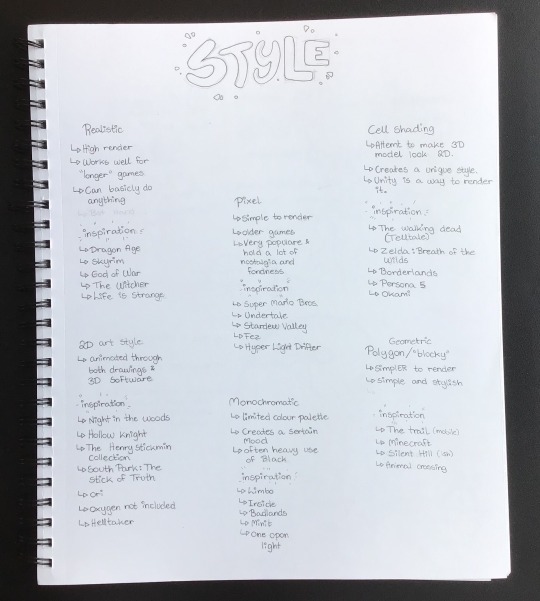 STYLE
Realistic
↳ High render
↳ Works well for
"longer" games
↳ Can basicly do
anything
inspiration:
↳ Dragon Age
↳ Skyrim
↳ God of War
↳ The Witcher
↳ Life is Strange
2D art style
↳ animated through
both drawings &
3D Software
inspiration:
↳ Night in the woods
↳ Hollow Knight
↳ The Henry stickmin
Collection
↳ South Park: The
Stick of Truth
↳ Ori
↳ Oxygen not included
↳ Helltaker
Pixel
↳ Simple to render
↳ older games
↳ Very populare &
hold a lot of
nostalgia and
fondness
inspiration
↳ Super Mario Bros.
↳ Undertale
↳ Stardew Valley
↳ Fez
↳ Hyper Light Drifter
Monochromatic
↳ limited colour palette
↳ Creates a sertain
Mood
↳ often heavy use
of Black
inspiration:
↳ Limbo
↳ Inside
↳ Badlands
↳ Minit
↳ One opon
light
Cell shading
↳ Attemt to make 3D
model look 2D.
↳ Creates a unique style.
↳ Unity is a way to render
it.
inspiration:
↳ The walking dead
(Telltale)
↳ Zelda: Breath of the
wilds
↳ Borderlands
↳ Persona 5
↳ Okami
Geometric
Polygon/"blocky"
↳ SimplER to render
↳ Simple and stylish
inspiration
↳ The trail (mobile)
↳ Minecraft
↳ Silent Hill (ish)
↳ Animal crossing